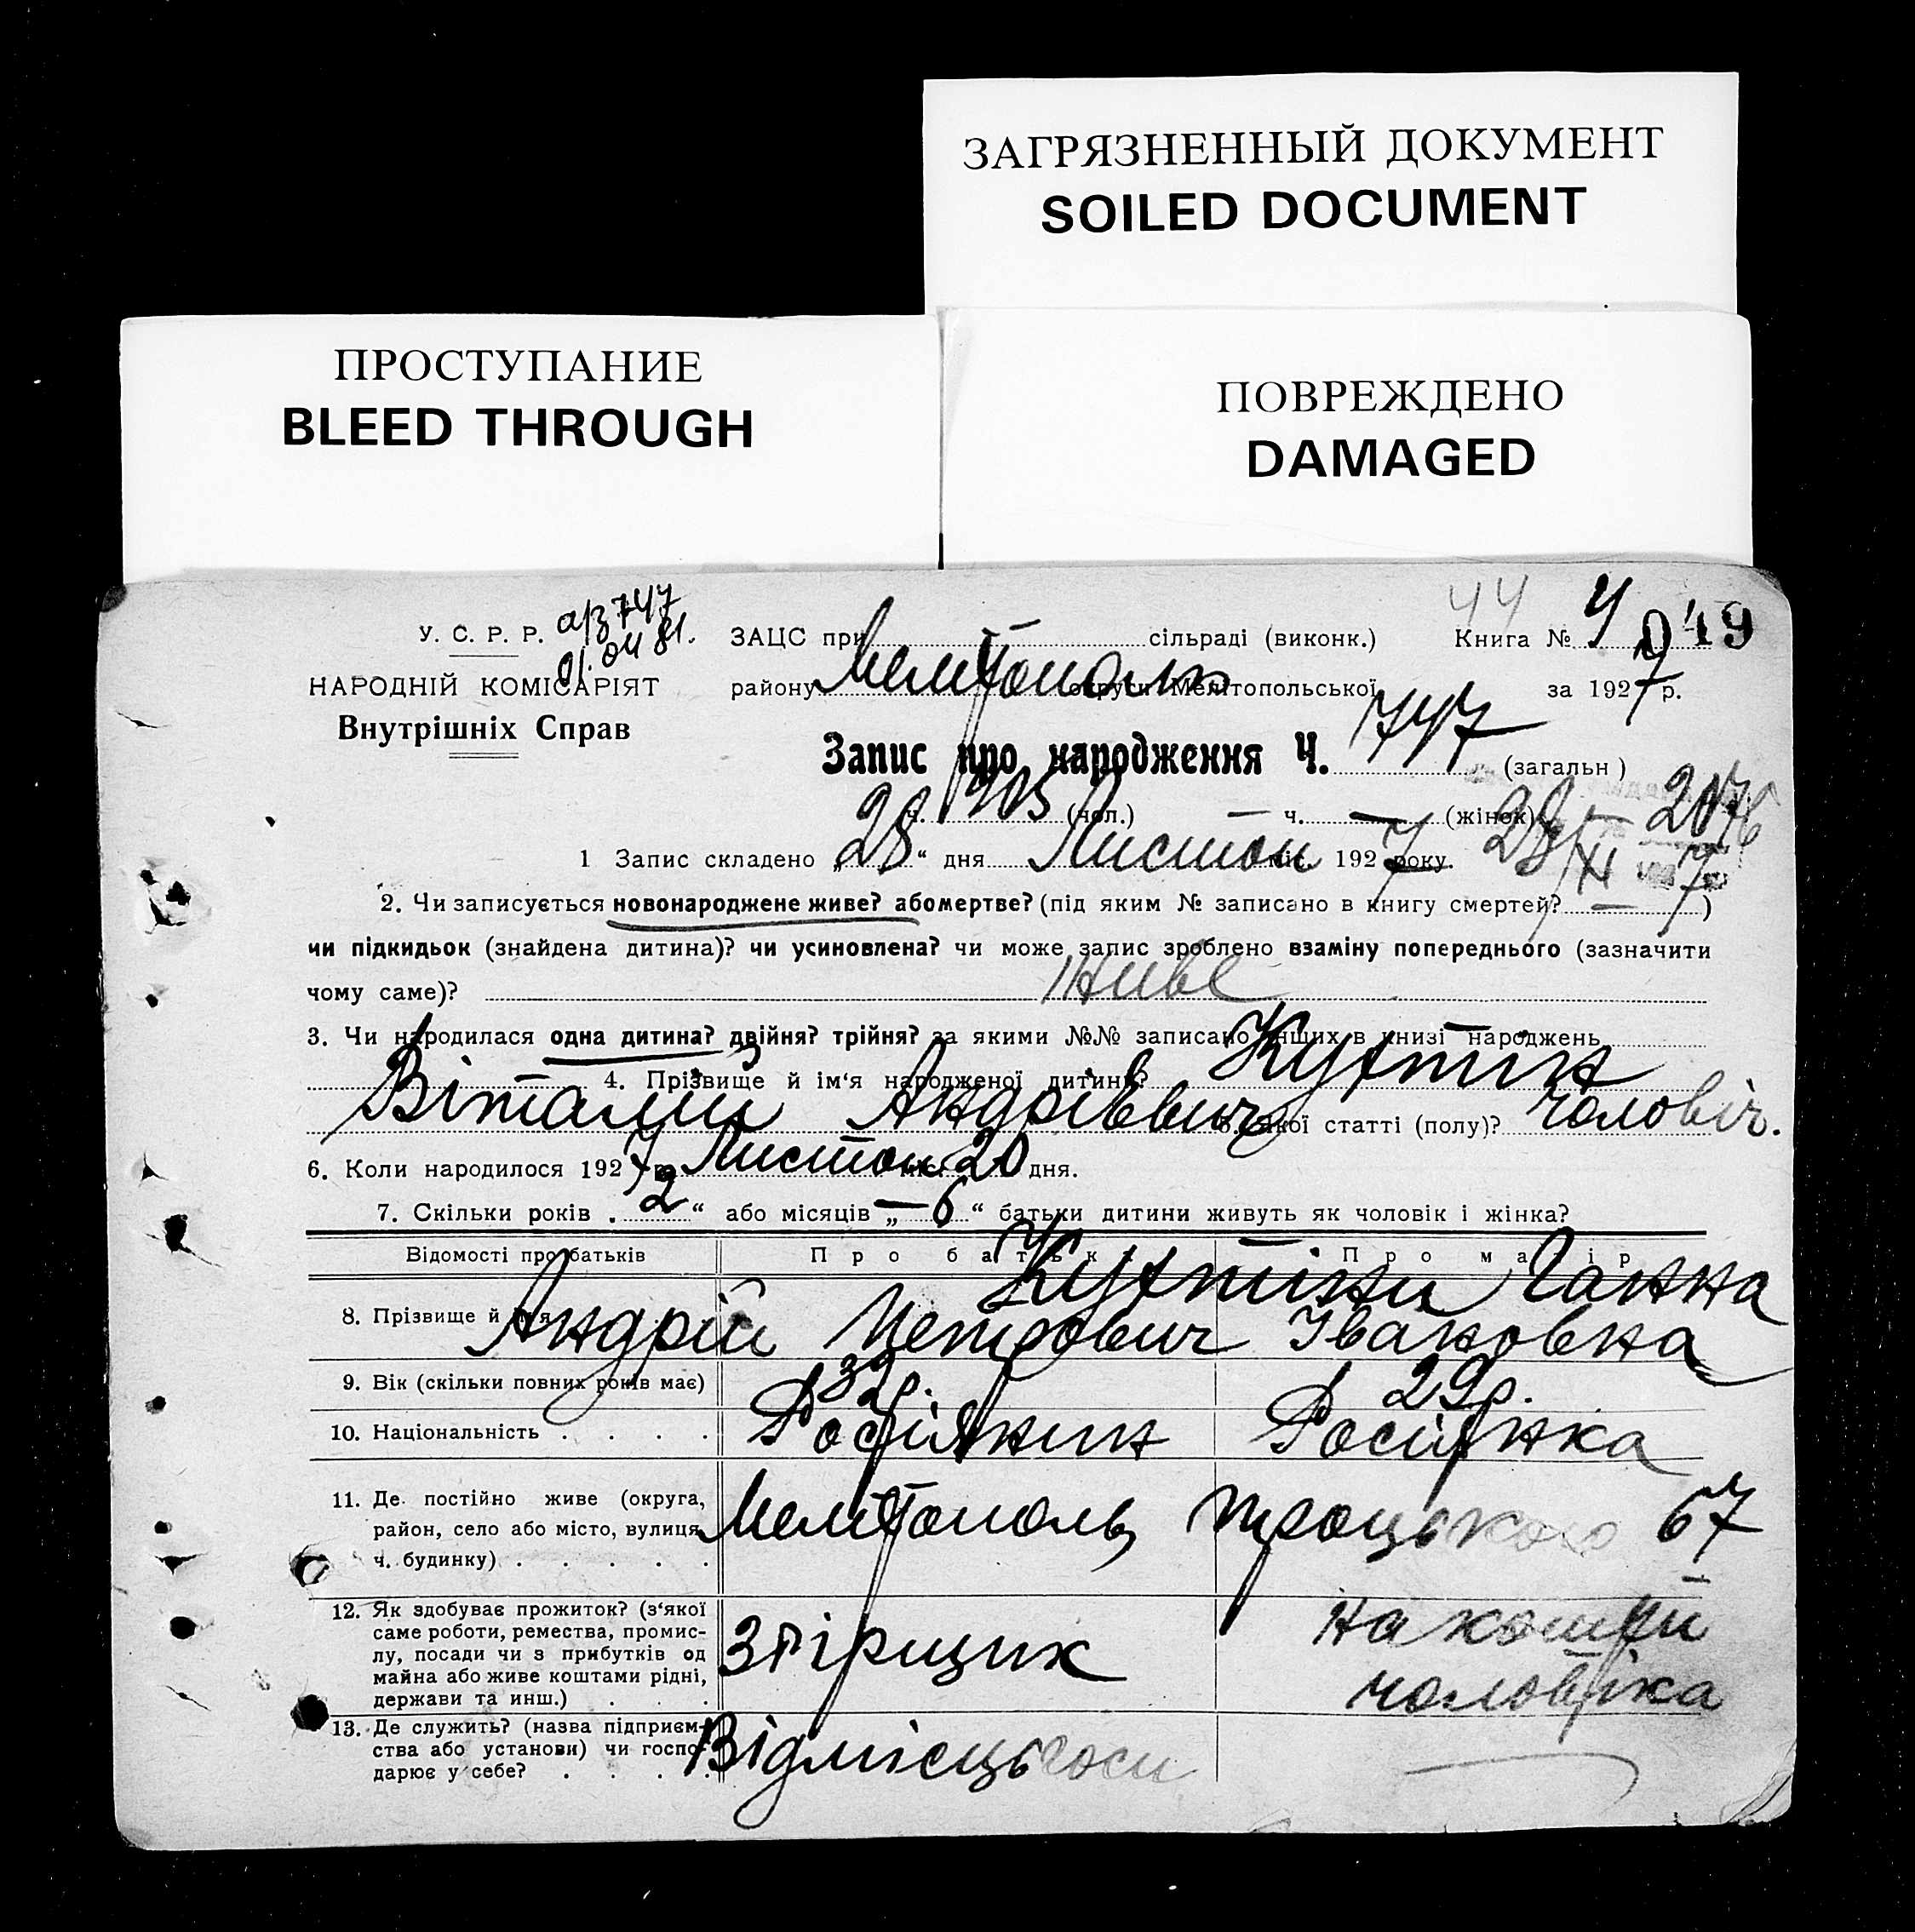 ЗАГРЯЗНЕННЫЙ ДОКУМЕНТ
SOILED DOCUMENT
ПРОСТУПАНИЕ
BLEED THROUGH
ПОВРЕЖДЕНО
DAMAGED
44
У. С. Р. Р. а/з 747 ЗАЦС при сільраді (виконк.) Книга № 4 049
01.04 81.
НАРОДНІЙ КОМІСАРІЯТ району Мелітополь округи Мелітопольської за 1927 р.
Внутрішніх Справ
Запис про народження Ч. 747 (загальн)
ч. 405 (чол.) — ч. — (жінок)
1 Запис складено „28“ дня Листоп міс. 1927 року. 28/XI 7
2. Чи записується новонароджене живе? або мертве? (під яким № записано в книгу смертей? — )
чи підкидьок (знайдена дитина)? чи усиновлена? чи може запис зроблено взаміну попереднього (зазначити
чому саме)? Живе
3. Чи народилася одна дитина? двійня? трійня? за якими №№ записано інших в книзі народжень —
4. Прізвище й ім'я народженої дитини? Кутпин
Віталий Андрієвич 5. Якої статті (полу)? чоловіч.
6. Коли народилося 1927 р. Листоп міс. 20 дня.
7. Скільки років „2“ або місяців „—6“ батьки дитини живуть як чоловік і жінка?
Відомості про батьків Про батька Про матір
8. Прізвище й ім'я Андрій Петрович Ганна Івановна
9. Вік (скільки повних років має) 32р. 29р.
10. Національність . . . . Росіянин Росіянка
11. Де постійно живе (округа,
район, село або місто, вулиця, Мелітополь, Троцького 67
ч. будинку) . . . . .
12. Як здобуває прожиток? (з'якої
саме роботи, ремества, промис-
лу, посади чи з прибутків од
майна або живе коштами рідні,
держави та инш.) . . .
на кошти
чоловіка
13. Де служить? (назва підприєм-
ства або установи) чи госпо-
дарює у себе? . . . .